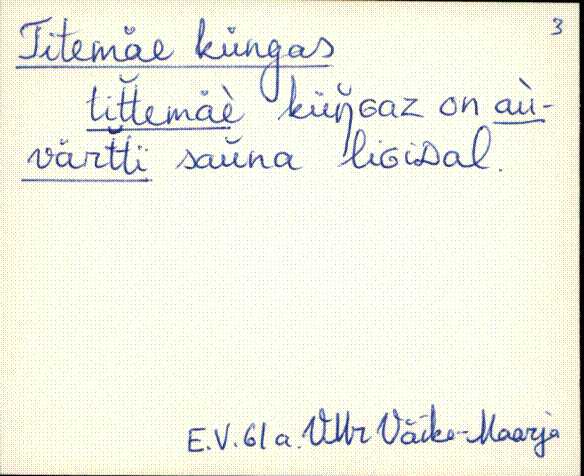 3
Titemäe küngas
tit̆temäè küŋ̆ɢaz on aù-
värt̆ti saŭna liɢiᴅal.
E.V. 61 a. VMr Väike-Maarja